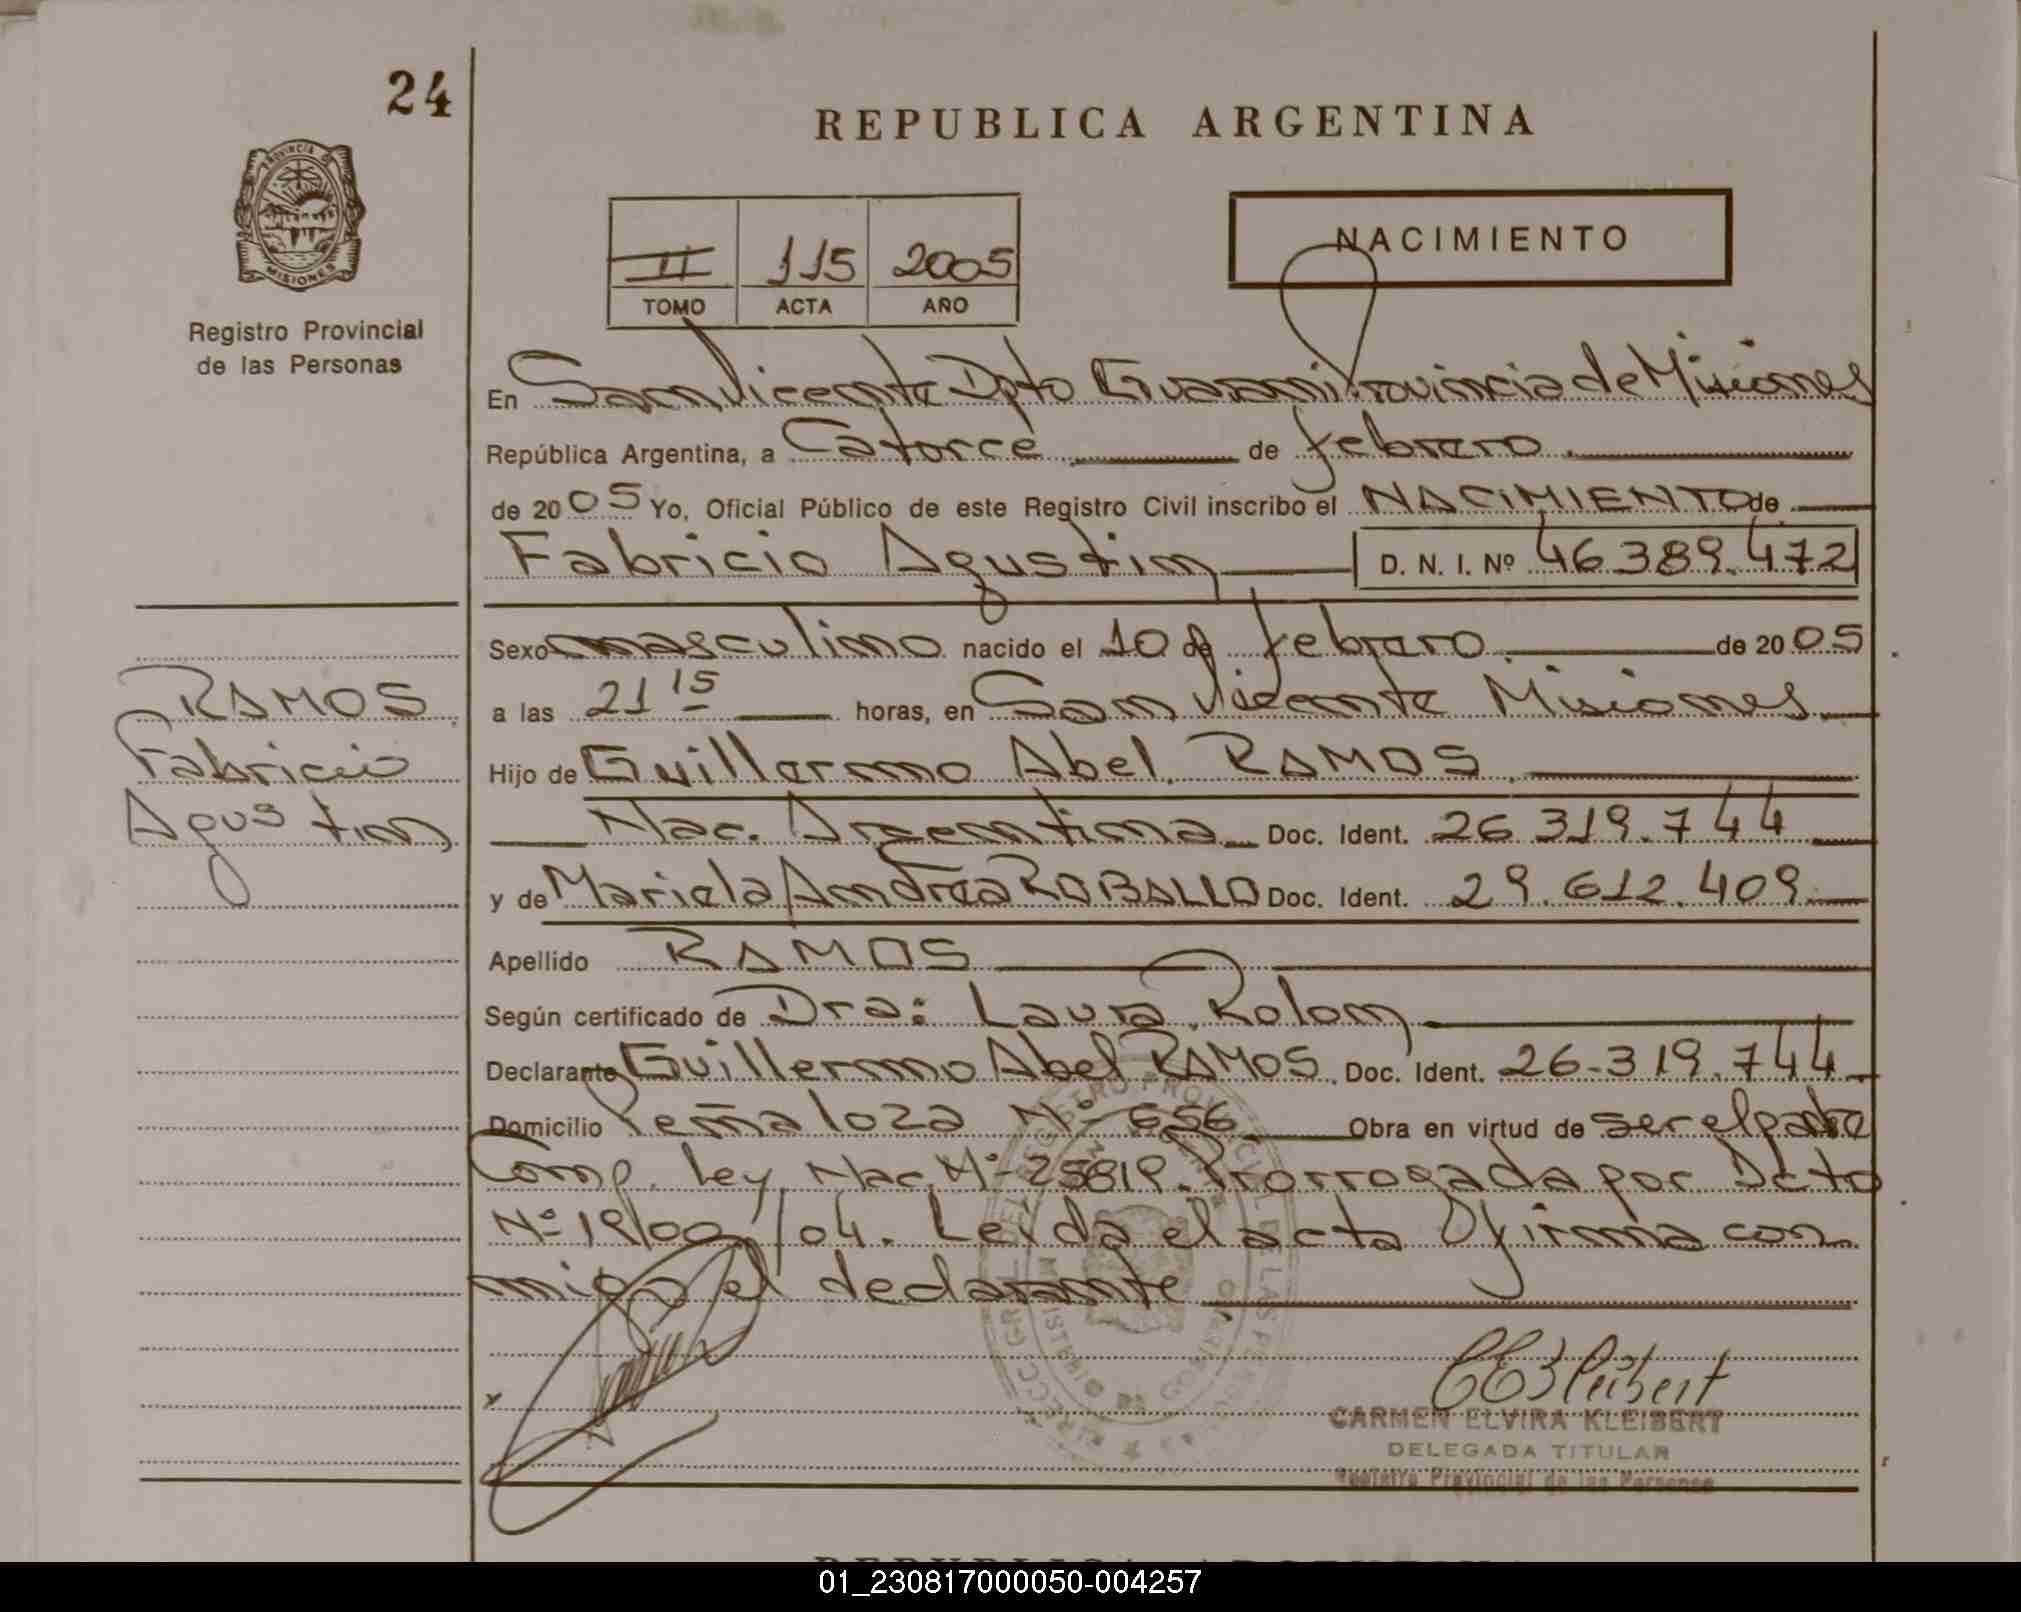 24
REPUBLICA ARGENTINA
PROVINCIA DE
MISIONES
Registro Provincial
de las Personas
II 115 2005
TOMO ACTA AÑO
NACIMIENTO
En San Vicente Dpto Guarani Provincia de Misiones
República Argentina, a Catorce de febrero
de 2005 Yo, Oficial Público de este Registro Civil inscribo el NACIMIENTO de
Fabricio Agustin D. N. I. Nº 46.389.472
Sexo masculino nacido el 10 de febrero de 2005
a las 21 15 horas, en San Vicente Misiones
RAMOS
Fabricio
Agustin
Hijo de Guillermo Abel RAMOS
Nac. Argentina Doc. Ident. 26.319.744
y de Mariela Andrea ROBALLO Doc. Ident. 29.612.409
Apellido RAMOS
Según certificado de Dra: Laura Rolon
Declarante Guillermo Abel RAMOS Doc. Ident. 26.319.744
Domicilio Peñaloza Nº 656 Obra en virtud de ser el padre
Comp. Ley Nac. Nº 25819. Prorrogada por Dcto
Nº 19/00 /04. Leída el acta y firma con
migo el declarante
CARMEN ELVIRA KLEIBERT
DELEGADA TITULAR
Registro Provincial de las Personas
01_230817000050-004257